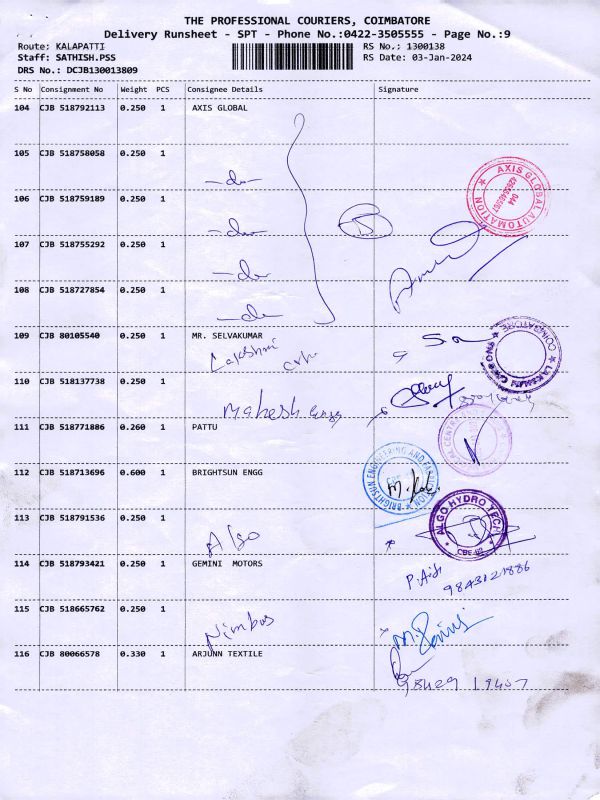 THE PROFESSIONAL COURIERS, COIMBATORE
Delivery Runsheet - SPT - Phone No.:0422-3505555 - Page No.:9
Route: KALAPATTI RS No.: 1300138
Staff: SATHISH.PSS RS Date: 03-Jan-2024
DRS No.: DCJB130013809
S No Consignment No Weight PCS Consignee Details Signature
104 CJB 518792113 0.250 1 AXIS GLOBAL
105 CJB 518758058 0.250 1
-do-
AXIS GLOBAL AUTOMATION
106 CJB 518759189 0.250 1
-do-
107 CJB 518755292 0.250 1
-do-
108 CJB 518727854 0.250 1
-do-
109 CJB 80105540 0.250 1 MR. SELVAKUMAR
Lakshmi
COIMBATORE
110 CJB 518137738 0.250 1
Mahesh Engg
111 CJB 518771886 0.260 1 PATTU
112 CJB 518713696 0.600 1 BRIGHTSUN ENGG
BRIGHTSUN ENGINEERING AND FABRICATION
113 CJB 518791536 0.250 1
Algo
ALGO HYDRO TECH
114 CJB 518793421 0.250 1 GEMINI MOTORS
9843121886
115 CJB 518665762 0.250 1
Nimbus
116 CJB 80066578 0.330 1 ARJUNN TEXTILE